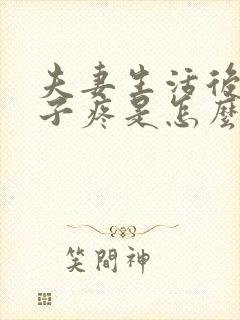 夫妻生活後
子疼是怎麼
笑間神